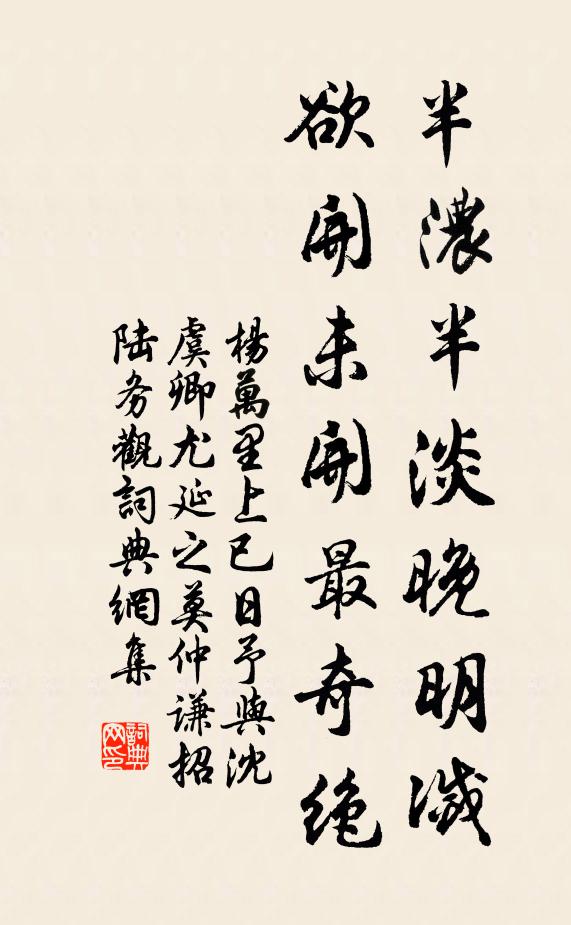 半濃半淡晚明滅
欲開未開最奇絶
楊萬里上巳日予與沈
虞卿尤延之莫仲謙招
陆务觀詞典網集
詞典網印